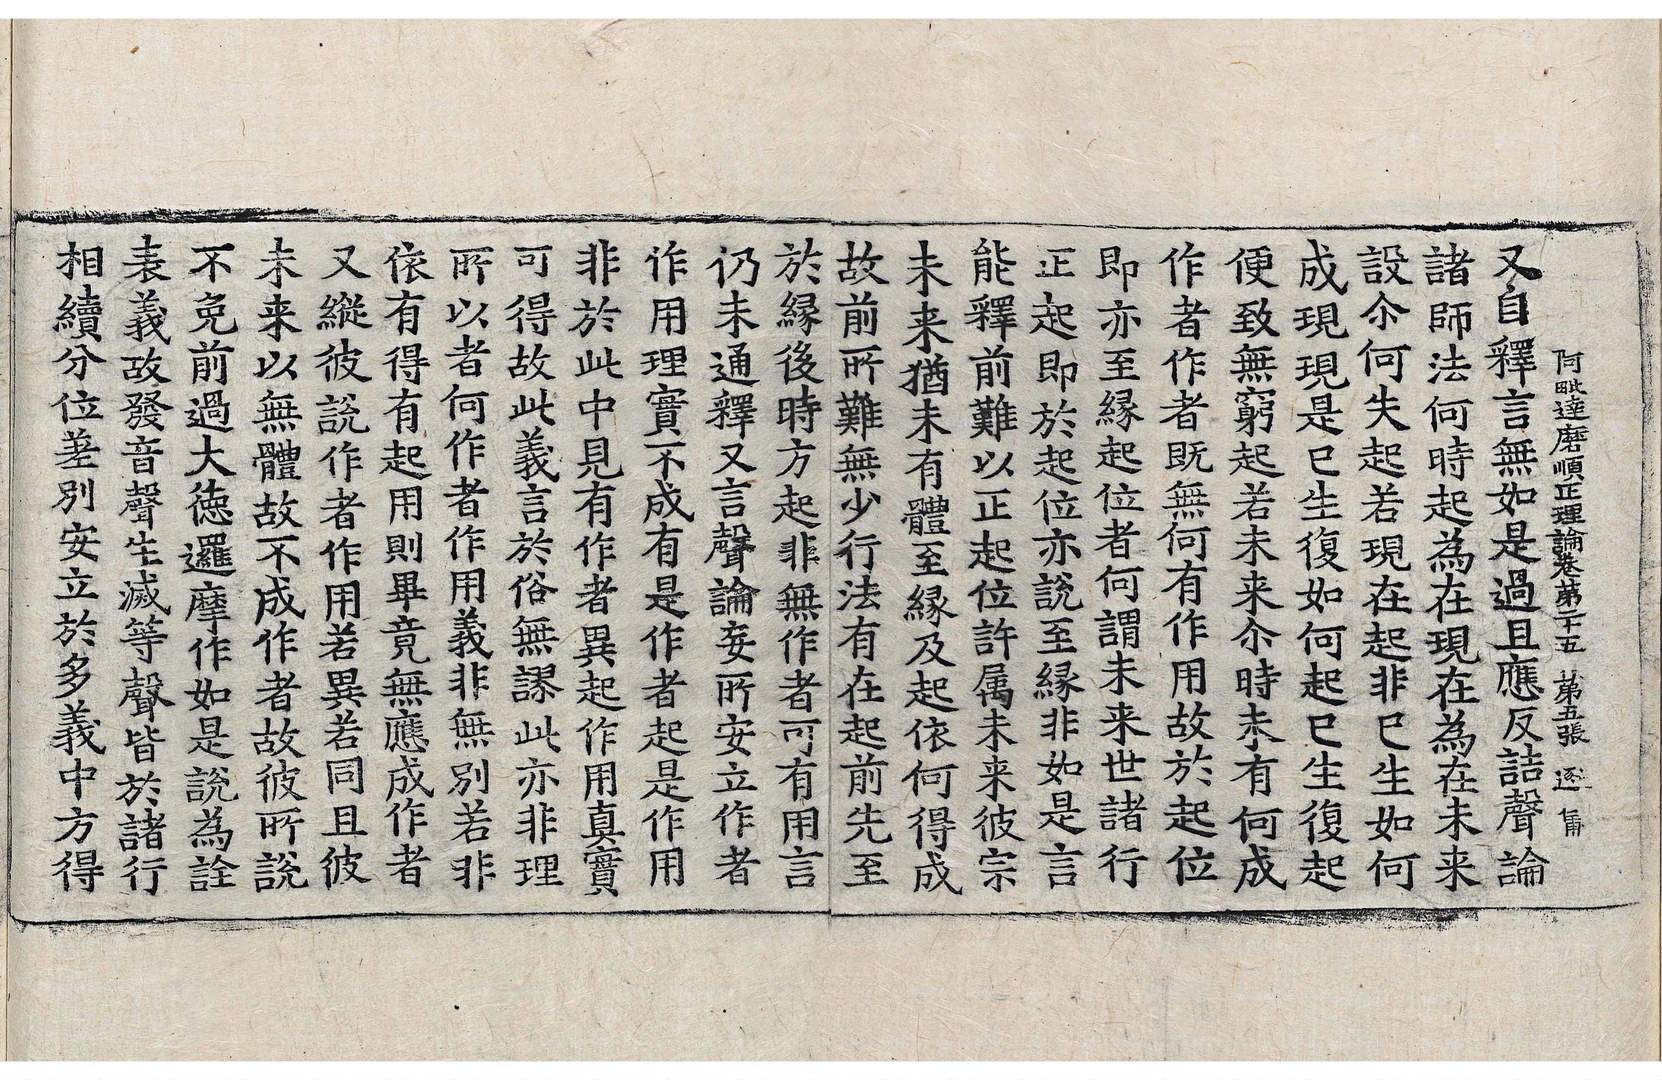 阿毗達磨順正理論卷第二十五 第五張 逐
又自釋言無如是過且應反詰聲論
諸師法何時起為在現在為在未来
設尒何失起若現在起非巳生如何
成現現是巳生復如何起巳生復起
便致無窮起若未来尒時未有何成
作者作者既無何有作用故於起位
即亦至縁起位者何謂未来世諸行
正起即於起位亦說至縁非如是言
能釋前難以正起位許属未来彼宗
未来猶未有體至縁及起依何得成
故前所難無少行法有在起前先至
於縁後時方起非無作者可有用言
仍未通釋又言聲論妄所安立作者
作用理實不成有是作者起是作用
非於此中見有作者異起作用真實
可得故此義言於俗無謬此亦非理
所以者何作者作用義非無別若非
依有得有起用則畢竟無應成作者
又縱彼說作者作用若異若同且彼
未来以無體故不成作者故彼所說
不免前過大徳邏摩作如是說為詮
表義故發音聲生滅等聲皆於諸行
相續分位差別安立於多義中方得